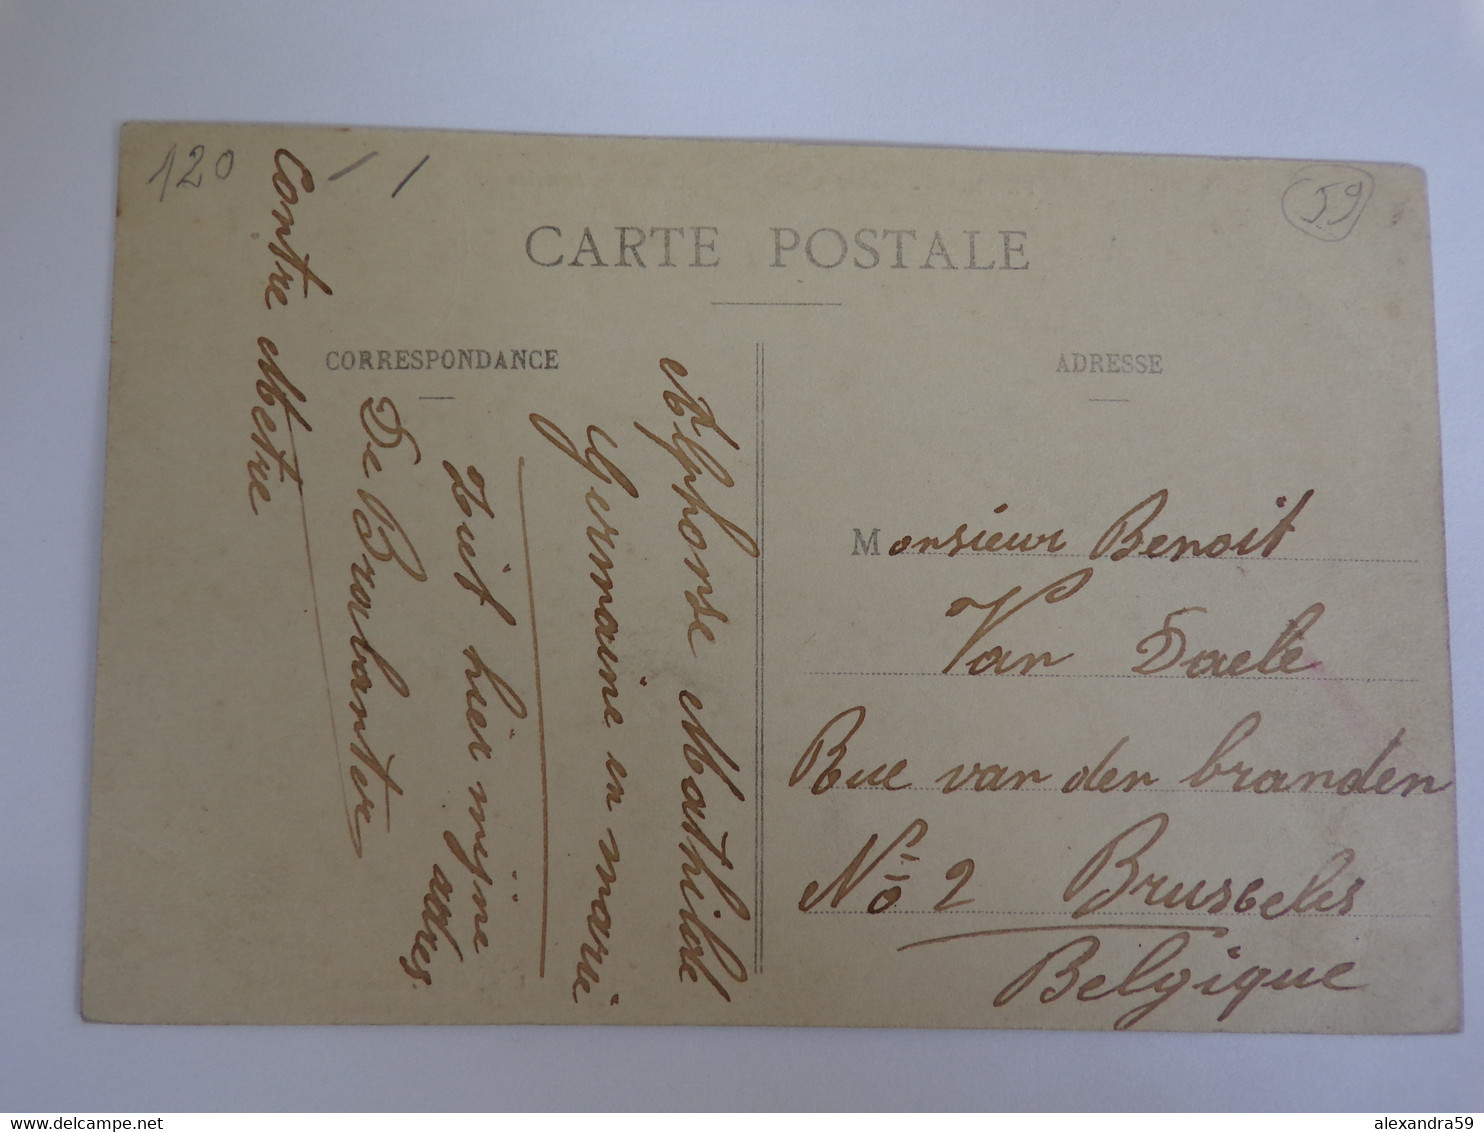 120
59
CARTE POSTALE
CORRESPONDANCE
ADRESSE
Alphonse Mathilde
Germaine en maria
Zuit hier mijne
adres
De Brabanter
Contre Metre
Monsieur Benoit
Van Daele
Rue van der branden
No 2 Brussels
Belgique
delcampe.net
alexandra59